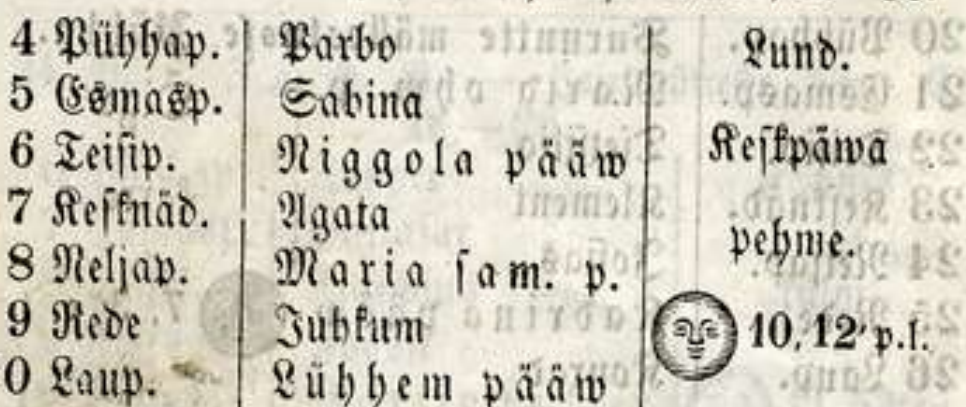 4 Pühhap. Parbo Lund.
5 Esmasp. Sabina
6 Teisip. Niggola pääw Keskpäwa
7 Kesknäd. Agata
8 Neljap. Maria sam. p. pehme.
9 Rede Juhkum 10, 12' p.l.
0 Laup. Lühhem pääw